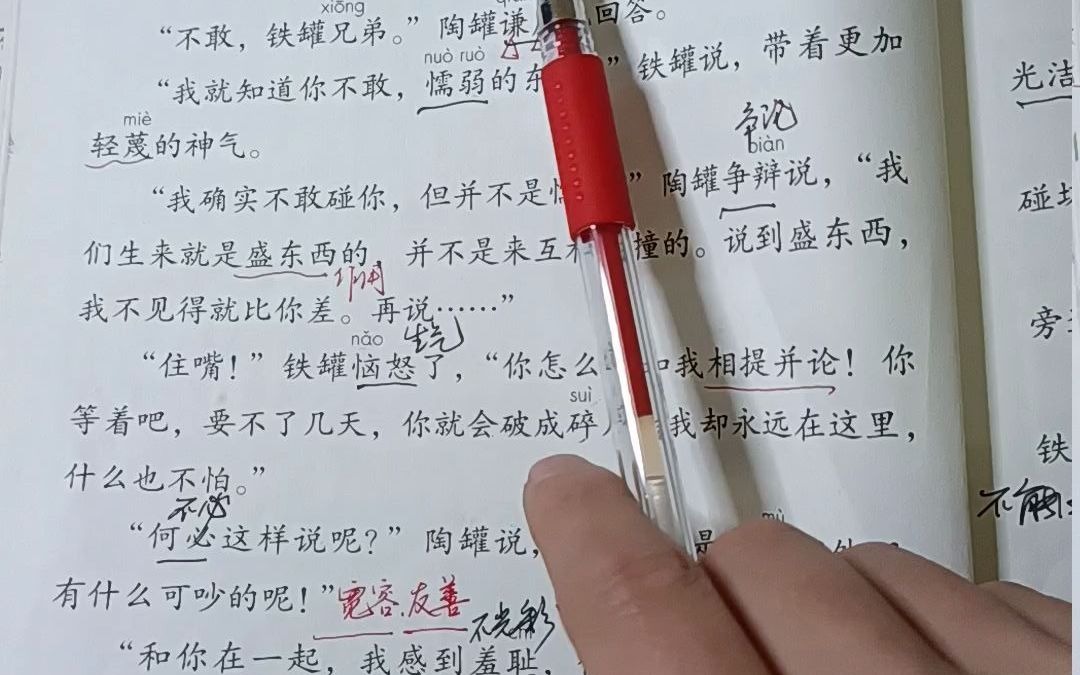 xiōng
“不敢，铁罐兄弟。”陶罐谦 回答。
nuò ruò
“我就知道你不敢，懦弱的东 ”铁罐说，带着更加
miè
轻蔑的神气。
争论
biàn
“我确实不敢碰你，但并不是 ”陶罐争辩说，“我
们生来就是盛东西的，并不是来互 撞的。说到盛东西，
作用
我不见得就比你差。再说……”
nǎo 生气
“住嘴！”铁罐恼怒了，“你怎么 和我相提并论！你
suì
等着吧，要不了几天，你就会破成碎 我却永远在这里，
什么也不怕。”
不必
“何必这样说呢？”陶罐说， 是
mù
有什么可吵的呢！”宽容、友善
不光彩
“和你在一起，我感到羞耻，
光洁
碰
旁
铁
不能